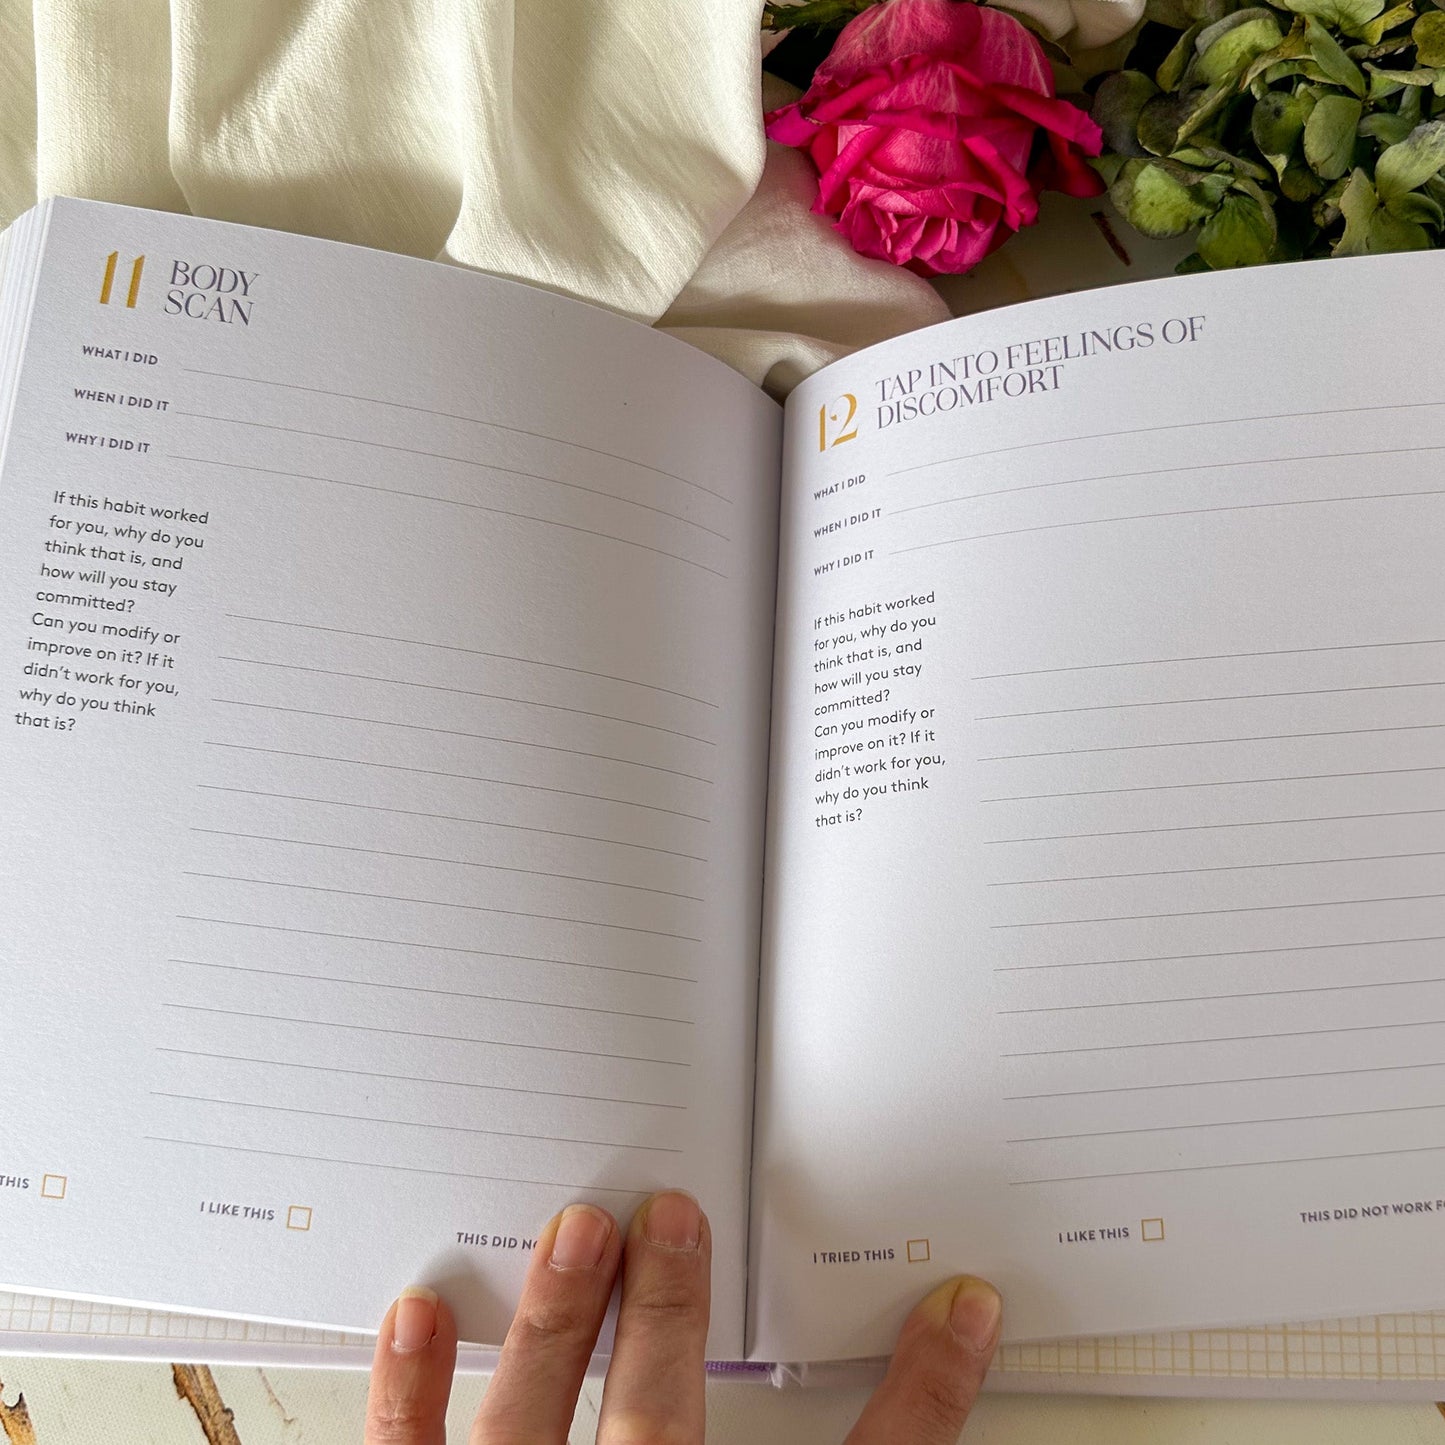 11 BODY
SCAN
WHAT I DID
WHEN I DID IT
WHY I DID IT
If this habit worked
for you, why do you
think that is, and
how will you stay
committed?
Can you modify or
improve on it? If it
didn't work for you,
why do you think
that is?
THIS
I LIKE THIS
THIS DID
12 TAP INTO FEELINGS OF
DISCOMFORT
WHAT I DID
WHEN I DID IT
WHY I DID IT
If this habit worked
for you, why do you
think that is, and
how will you stay
committed?
Can you modify or
improve on it? If it
didn't work for you,
why do you think
that is?
I TRIED THIS
I LIKE THIS
THIS DID NOT WORK